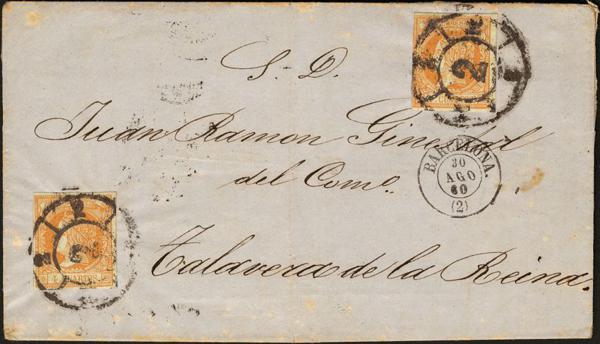 S. D.
Juan Ramon
del Como.
Talavera de la Reina.
BARCELONA.
30
AGO
60
(2)
2
2